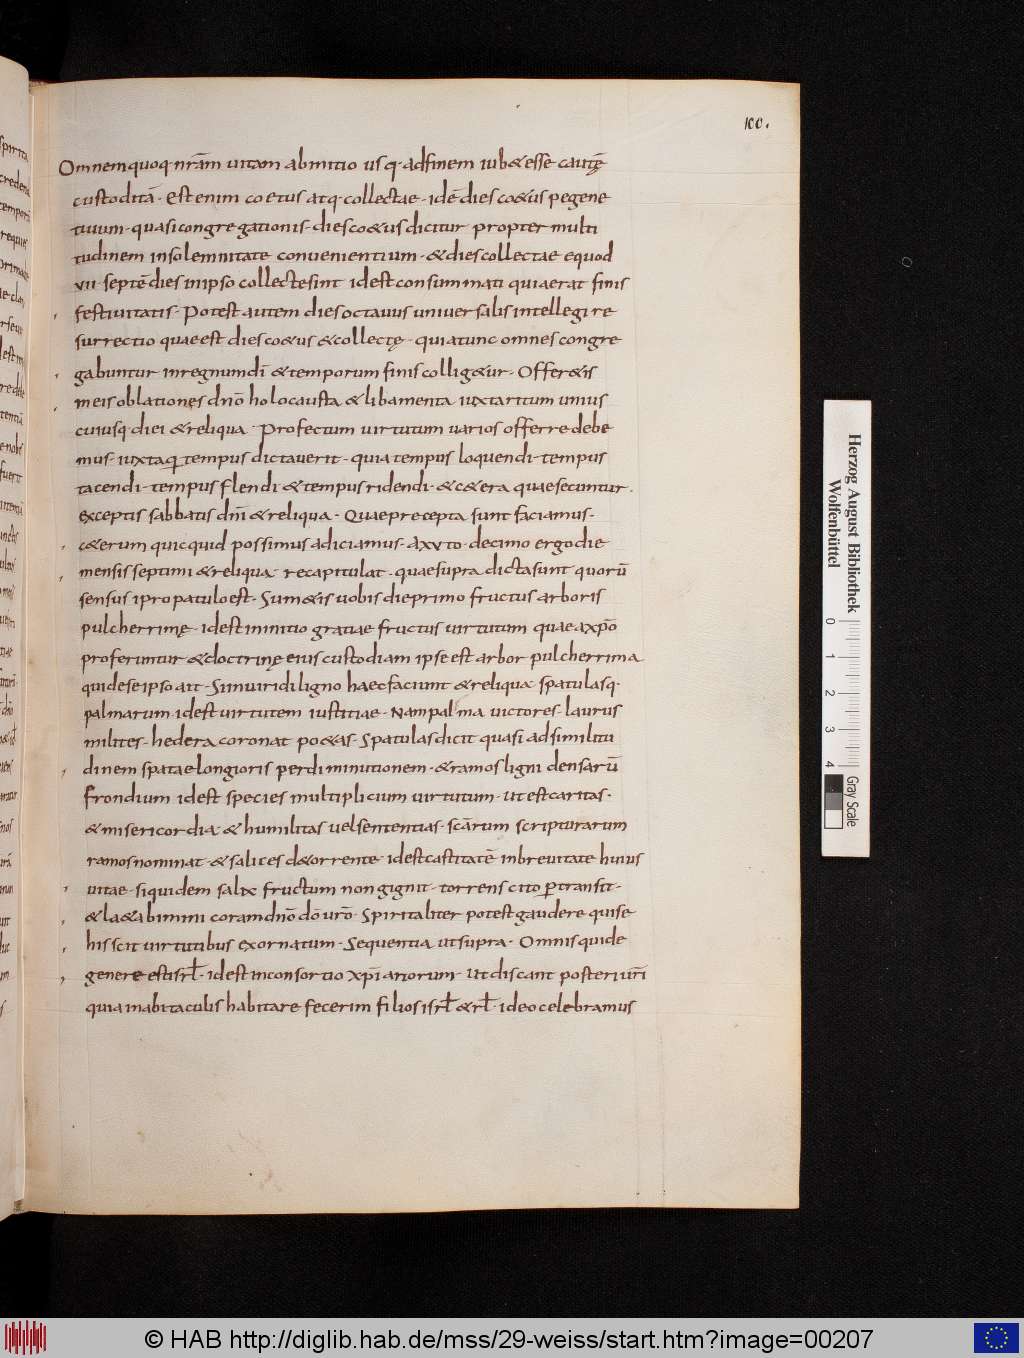 100.
Omnem quoq· nr̄am uitam ab initio usq· ad finem iub& esse cautę
custoditā· Est enim coetus atq· collectae· idē dies co&us pegene
tiuum· quasi congregationis· dies co&us dicitur propter multi
tudinem in solemnitate conuenientium· & dies collectae e quod
vii· septē dies in ipso collecte sint id est consummati quia erat finis
festiuitatis· Potest autem dies octauus uniuersalis intellegi re
surrectio quae est dies co&us & collectę· quia tunc omnes congre
gabuntur in regnum dī & temporum finis collig&ur· Offer&is
in eis oblationes dn̄o holocausta & libamenta iuxta ritum unius
cuiusq· diei & reliqua· Profectum uirtutum uarios offerre debe
mus· iuxta q̣ tempus dictauerit· quia tempus loquendi· tempus
tacendi· tempus flendi & tempus ridendi· & c&era quae secuntur·
exceptis sabbatis dn̄i & reliqua· Quae precepta sunt faciamus·
c&erum quicquid possimus adiciamus· a xvto· decimo ergo die
mensis septimi & reliqua· recapitulat· quae supra dicta sunt quorū
sensus i propatulo est· Sum&is uobis die primo fructus arboris
pulcherrimę· id est in initio gratiae fructus uirtutum quae a xp̄o
proferuntur & doctrinę eius custodiam ipse est arbor pulcherrima
qui de se ipso ait· Si in uiridi ligno haec faciunt & reliqua spatulasq·
palmarum id est uirtutem iustitiae· Nam palma uictores· laurus
milites· hedera coronat po&as· Spatulas dicit quasi ad similitu
dinem spatae longioris per diminutionem· & ramos ligni densarū
frondium id est species multiplicium uirtutum· ut est caritas·
& misericordia & humilitas uel sententias· sc̄arum scripturarum
ramos nominat· & salices d& orrente id est castitatē in breuitate huius
uitae· siquidem salix fructum non gignit· torrens cito p̲transit·
& l&abimini coram dn̄o dō ur̄o· Spiritaliter potest gaudere qui se
his scit uirtutibus exornatum· Sequentia ut supra· Omnis qui de
genere est isrl̄· id est in consortio xp̄ianorum· ut discant posteri ur̄i
quia in habitaculis habitare fecerim filios isrl̄ & rl̄· ideo celebramus
Herzog August Bibliothek
Wolfenbüttel
0 1 2 3 4
Gray Scale
© HAB http://diglib.hab.de/mss/29-weiss/start.htm?image=00207